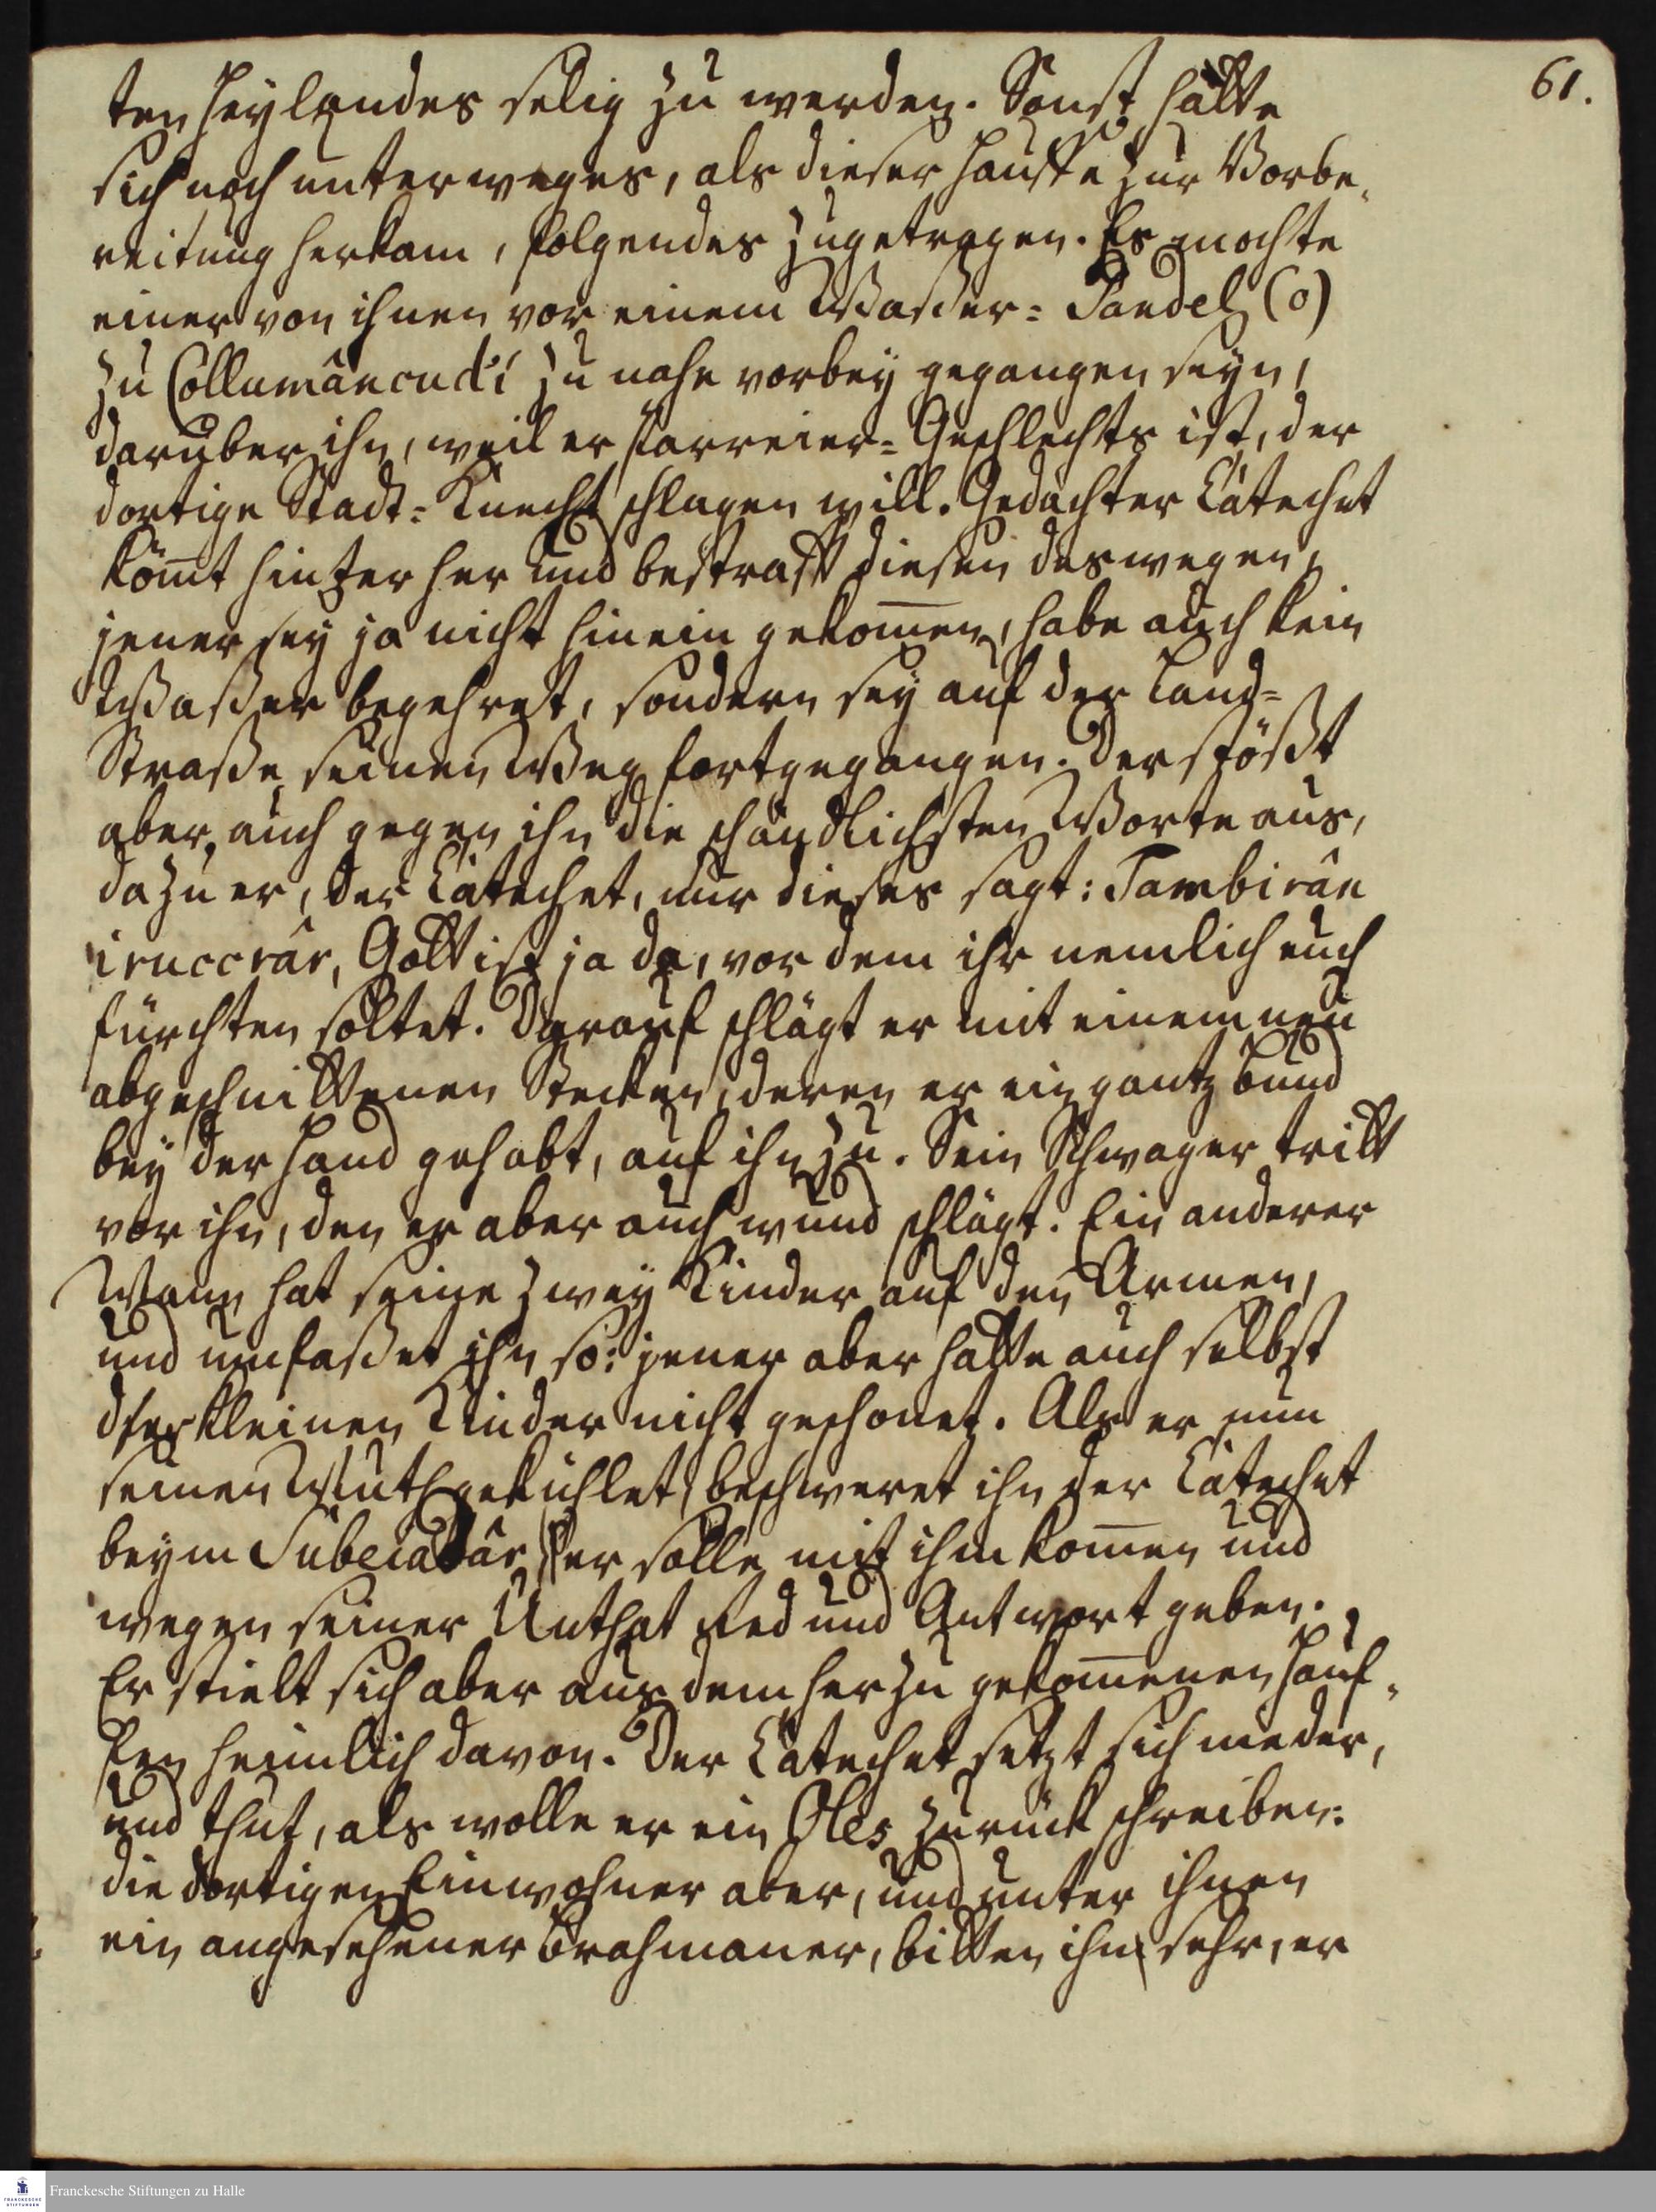 61.
ten Heylandes selig zu werden. Sonst hatte
sich noch unterweges, als dieser Hauffe zur Vorbe„
reitung herkam, folgendes zugetragen. Es mochte
einer von ihnen vor einem Waßer= Pandel (o)
zu Collumâncudi zu nahe vorbey gegangen seyn,
darüber ihn, weil er parreier= Geschlechts ist, der
dortige Stadt= Knecht schlagen will. Gedachter Catechet
kömt hinter her und bestrafft diesen deswegen,
jener sey ja nicht hinein gekomen, habe auch kein
Waßer begehret, sondern sey auf der Land=
Straße seinen Weg fortgegangen. Der stößt
aber auch gegen ihn die schändlichsten Worte aus,
dazu er, der Catechet, nur dieses sagt: Tambirân
iruccrâr, Gott ist ja da, vor dem ihr nemlich euch
fürchten soltet. Darauf schlägt er mit einem neu
abgeschnittenen Stecken, deren er ein gantz Bund
bey der Hand gehabt, auf ihn zu. Sein Schwager tritt
vor ihn, den er aber auch wund schlägt. Ein anderer
Mann hat seine zwey Kinder auf den Armen,
und umfaßet ihn so: jener aber hatte auch selbst
der kleinen Kinder nicht geschonet. Als er nun
seinen Muth gekühlet, beschweret ihn der Catechet
beym Subeiadâr, er solle mit ihm komen und
wegen seiner Unthat Red und Antwort geben.
Er stielt sich aber aus dem herzu gekomenen Hauf„
fen heimlich davon. Der Catechet setzt sich nieder,
und thut, als wolle er ein Oles zurück schreiben:
die dortigen Einwohner aber, und unter ihnen
ein angesehener Brahmaner, bitten ihn sehr, er
Franckesche Stiftungen zu Halle
FRANCKESCHE STIFTUNGEN